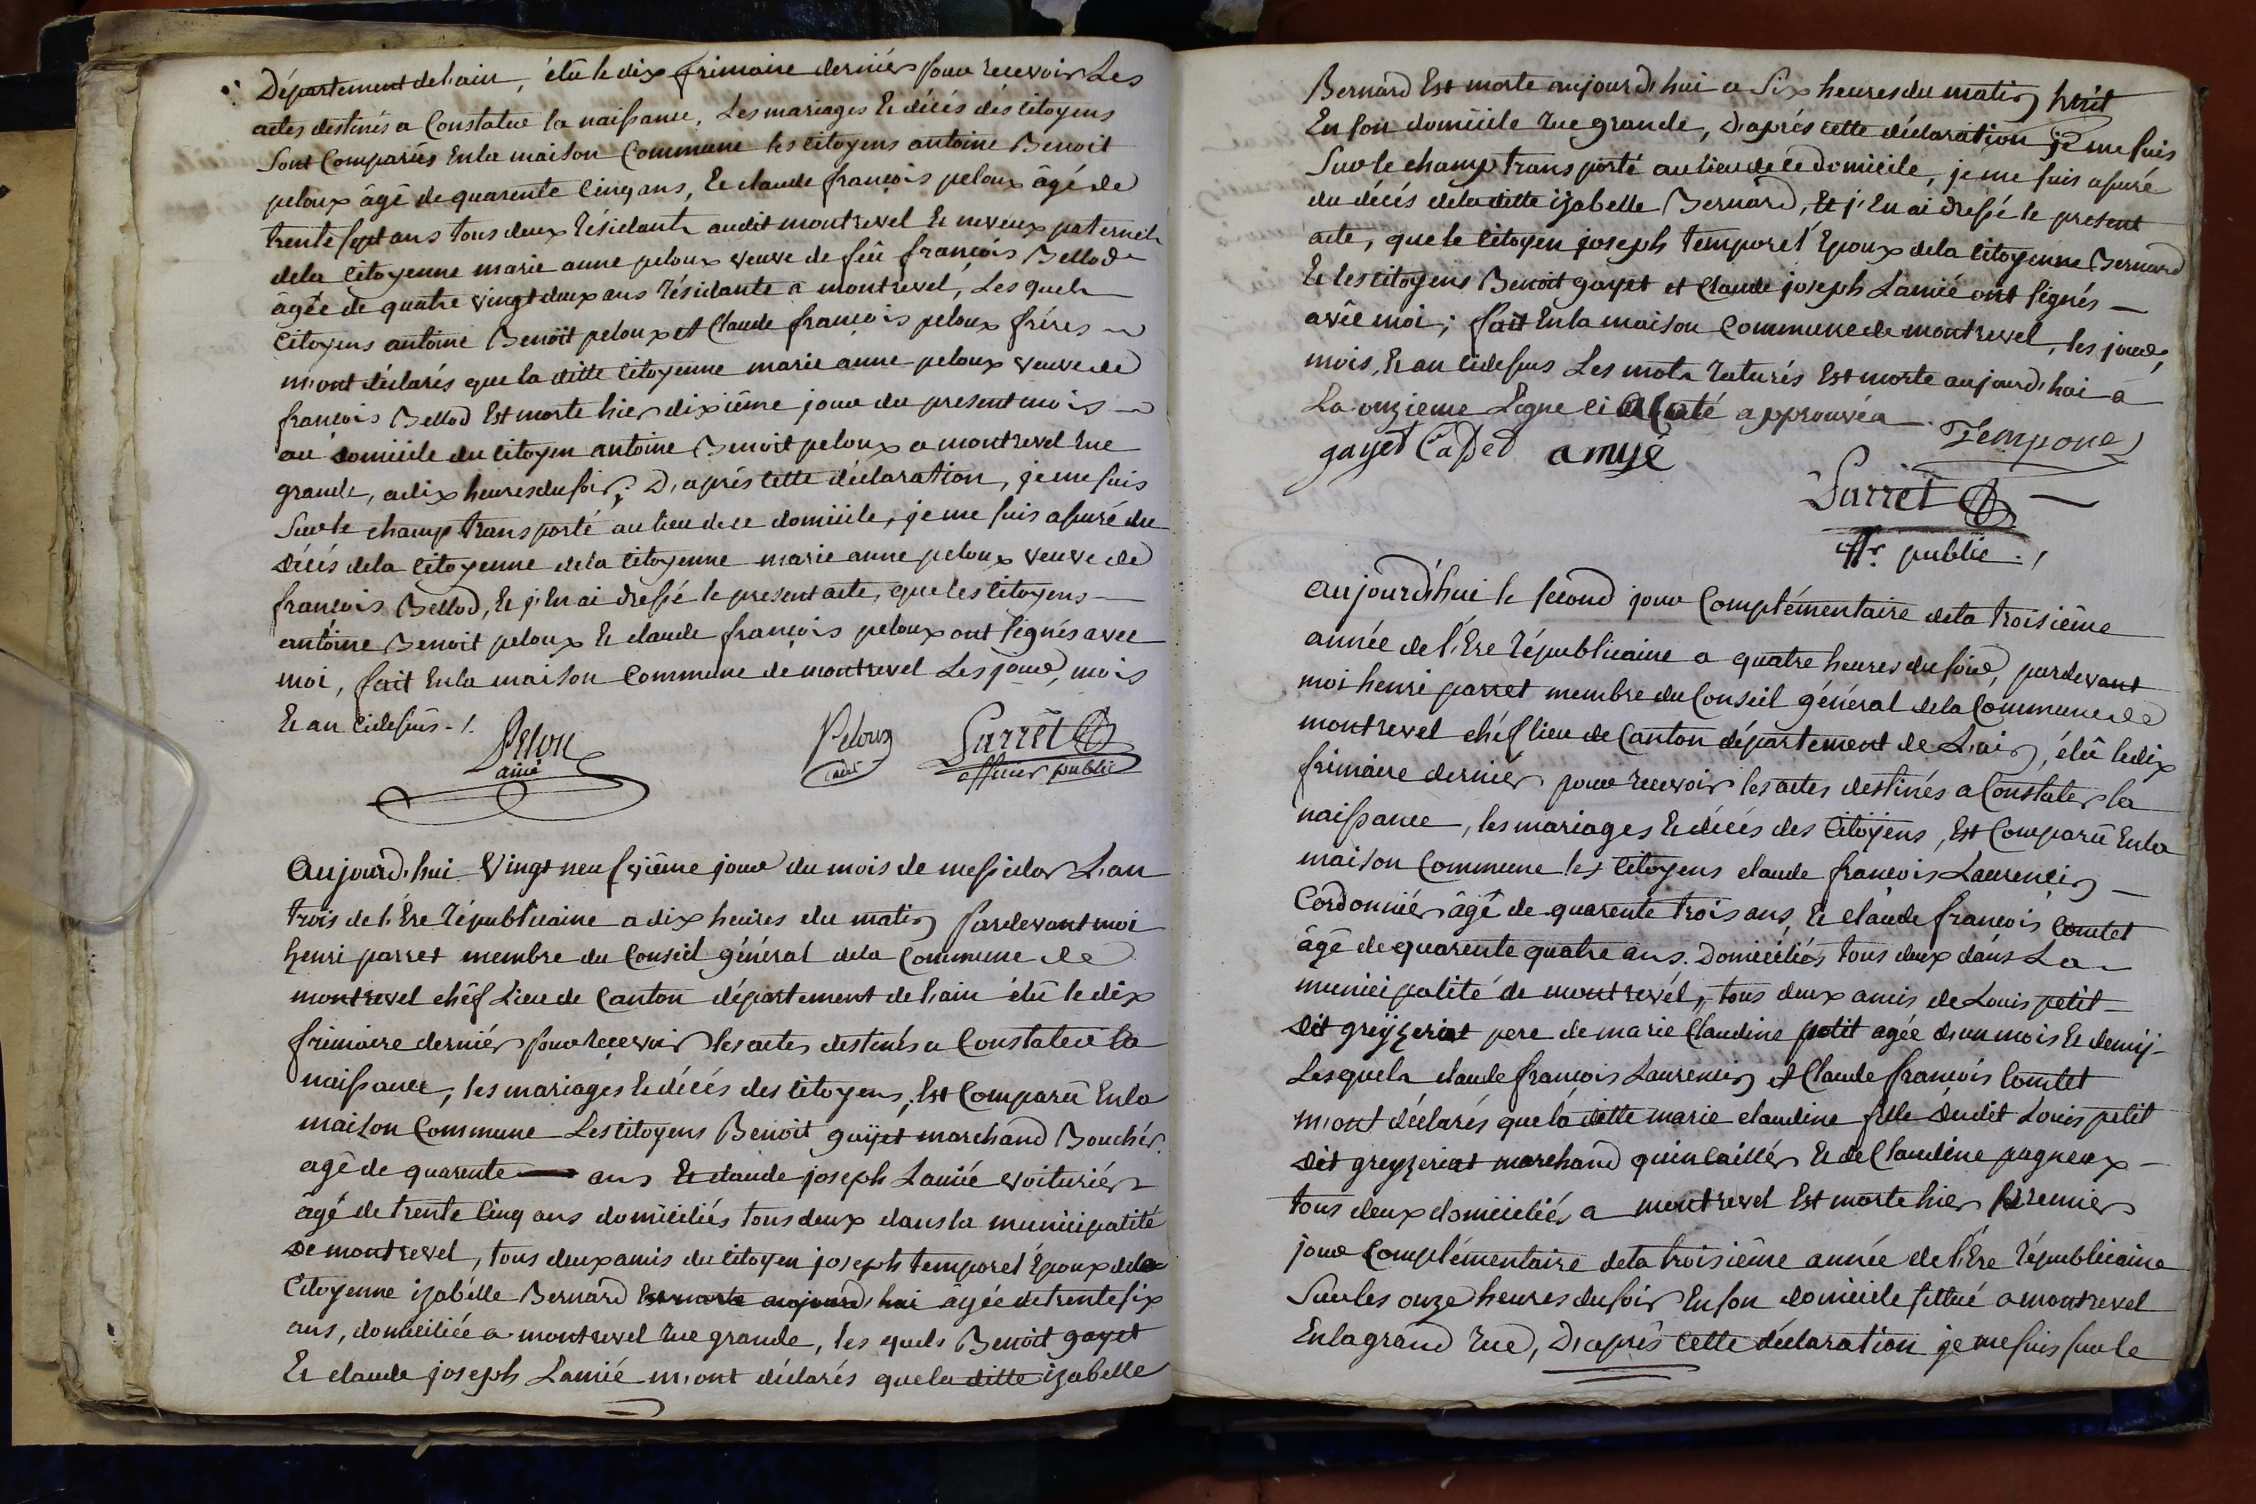 Département de l'ain, élû le dix frimaire dernier pour recevoir Les
actes destinés a Constater la naissance, Les mariages Et décés des citoyens
Sont Comparûs En la maison Commune les citoyens antoine Benoit
peloux âgé de quarente Cinq ans, Et claude françois peloux âgé de
trente sept ans tous deux résidants audit montrevel Et neveux paternels
de la citoyenne marie anne peloux veuve de feû françois Bellod
âgée de quatre vingt deux ans résidante a montrevel, Lesquels
citoyens antoine Benoit peloux et Claude françois peloux fréres
m'ont déclarés que la ditte citoyenne marie anne peloux veuve de
françois Bellod Est morte hier dixiême jour du present mois
au domicile du citoyen antoine Benoit peloux a montrevel rue
grande, a dix heures du soir; D'aprés cette déclaration, je me suis
Sur le champ transporté au lieu de ce domicile, je me suis assuré du
décés de la citoyenne de la citoyenne marie anne peloux veuve de
françois Bellod, Et j'En ai dressé le present acte, que les citoyens
antoine Benoit peloux Et claude françois peloux ont signés avec
moi, fait En la maison Commune de montrevel Les jour, mois
Et an cidessus -/.
Pelou ainé Peloux cadet Parrèt officier public
aujourd'hui Vingt neufviême jour du mois de messidor L'an
trois de l'Ere républicaine a dix heures du matin pardevant moi
henri parret membre du Conseil général de la Commune de
montrevel chêf Lieu de Canton département de l'ain élû le dix
frimaire dernier pour recevoir les actes destinés a Constater la
naissance, les mariages Et décés des citoyens, Est Comparû En la
maison Commune Les citoyens Benoit gayet marchand Bouchér
agé de quarente ans Et claude joseph Lamié voiturier
âgé de trente Cinq ans domiciliés tous deux dans la municipalité
De montrevel, tous deux amis du citoyen joseph temporel Epoux de la
Citoyenne izabelle Bernard Est morte aujourd'hui âgée de trente six
ans, domiciliée a montrevel rue grande, les quels Benoit gayet
Et claude joseph Lamié m'ont déclarés que la ditte izabelle
Bernard Est morte aujourd'hui a Six heures du matin
En son domicile rue grande, D'aprés cette déclaration je me suis
Sur le champ transporté au lieu de ce domicile, je me suis assuré
du décés de la ditte izabelle Bernard, Et j'En ai dressé le present
acte, que le citoyen joseph temporel Epoux de la citoyenne Bernard
Et les citoyens Benoit gayet et Claude joseph Lamié ont signés
avéc moi; fait En la maison Commune de montrevel, les jour,
mois, Et an cidessus Les mots raturés Est morte aujourd'hui a
La onzieme Ligne ci a Coté approuvéa
gayet Caded amyé Tempore
Parrèt
offr. public ./
aujourd'hui le second jour Complémentaire de la troisiême
année de l'Ere républicaine a quatre heures du soir, pardevant
moi henri parret membre du Conseil général de la Commune de
montrevel chéf lieu de Canton département de L'ain, élû le dix
frimaire dernier pour recevoir les actes destinés a Constater la
naissance, les mariages Et décés des Citoyens, Est Comparû En la
maison Commune les citoyens claude françois Laurencin
Cordonnier âgé de quarente trois ans, Et claude françois Comtet
âgé de quarente quatre ans. Domiciliés tous deux dans La
municipalité de montrevél, tous deux amis de Louis petit
dit greyzeriat pere de marie Claudine petit agée d'un mois Et demij
Lesquels claude françois Laurencin et Claude françois Comtet
m'ont déclarés que la ditte marie claudine fille dudit Louis petit
dit greyzeriat marchand quincaillér Et de Claudine pagneux
tous deux domiciliés a montrevel Est morte hier premier
jour Complémentaire de la troisiême année de l'Ere républicaine
Sur les onze heures du soir En son domicile sittué a montrevel
En la grand rue, D'aprés cette déclaration je me suis sur le